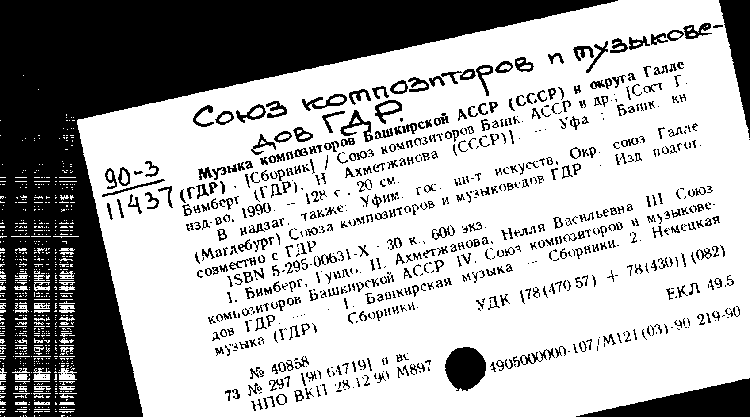 Союз композиторов и музыкове-
дов ГДР.
90-3
11437
Музыка композиторов Башкирской АССР (СССР) и округа Галле
(ГДР) : [Сборник] / Союз композиторов Башк. АССР и др.; [Сост. Г.
Бимберг (ГДР), Н. Ахметжанова (СССР)]. — Уфа : Башк. кн
изд-во, 1990. — 128 с ; 20 см.
В надзаг. также: Уфим. гос. ин-т искусств, Окр. союз Галле
(Магдебург) Союза композиторов и музыковедов ГДР Изд подгот.
совместно с ГДР
ISBN 5-295-00631-X : 30 к., 600 экз.
1. Бимберг, Гуидо. II. Ахметжанова, Нелля Васильевна III Союз
композиторов Башкирской АССР IV. Союз композиторов и музыкове-
дов ГДР. 1. Башкирская музыка — Сборники. 2. Немецкая
музыка (ГДР) Сборники.
УДК [78(470.57) + 78(430)] (082)
ЕКЛ 49.5
№ 40858
73 № 297 [90-64719] п вс
НПО ВКП 28.12.90 М897
4905000000-107/М121(03)-90 219-90